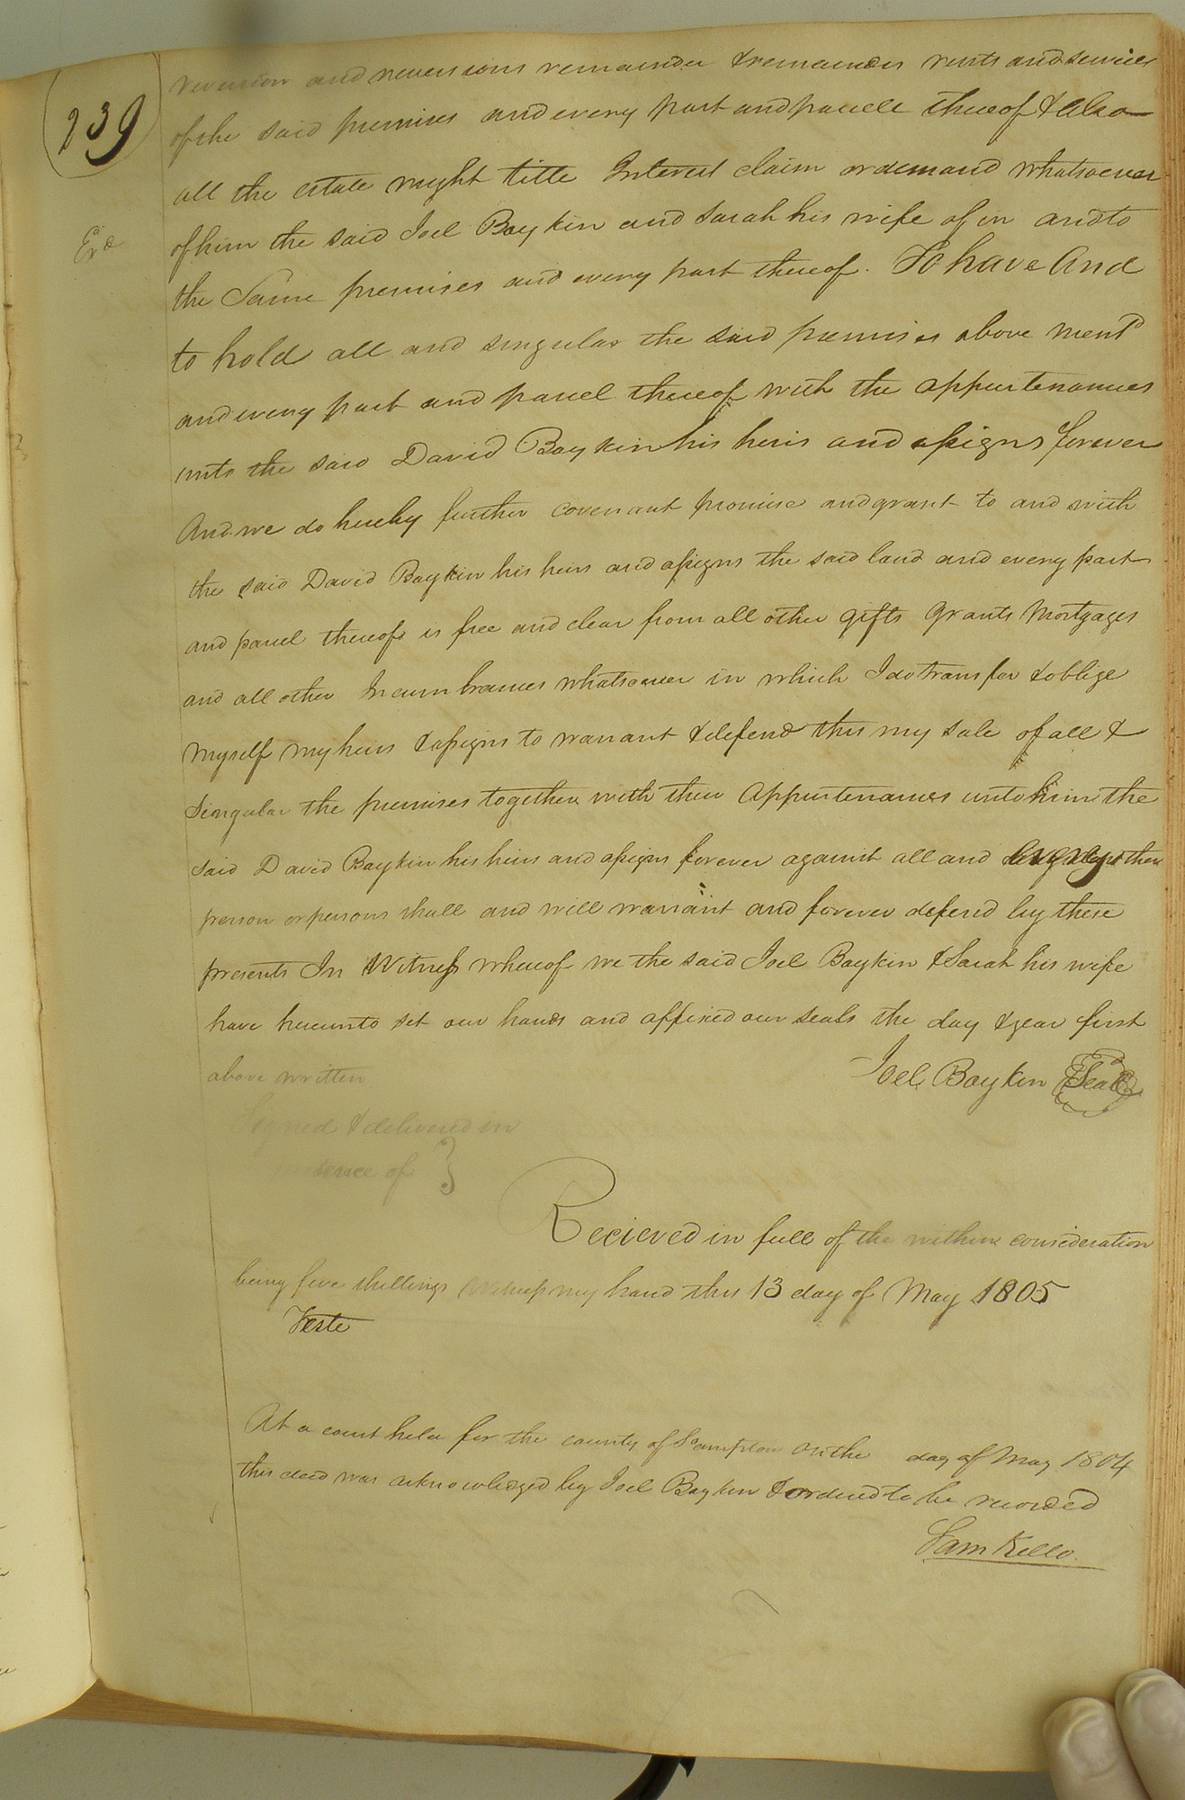 239
reversion and reversions remainder & remainders rents and services
of the said premises and every part and parcele thereof & Also
all the estate right title Interest claim or demand whatsoever
Exd
of him the said Joel Boykin and Sarah his wife of in and to
the Same premises and every part thereof. To have And
to hold all and singular the said premises above mentd
and every part and parcel thereof with the appurtenances
unto the said David Boykin his heirs and assigns forever
And we do hereby further covenant promise and grant to and with
the said David Boykin his heirs and assigns the said land and every part
and parcel thereof is free and clear from all other gifts Grants Mortgages
and all other Incumbrances whatsoever in which I do transfer & oblige
myself my heirs & assigns to warrant & defend this my sale of all &
Singular the premises together with their Appurtenances unto him the
said David Boykin his heirs and assigns forever against all and every other
person or persons shall and will warrant and forever defend by these
presents In Witness whereof we the said Joel Boykin & Sarah his wife
have hereunto set our hands and affixed our seals the day & year first
above written
Joel Boykin Seal
Signed & delivered in
presence of
Recieved in full of the within consideration
being five shillings Witness my hand this 13 day of May 1805
Teste
At a court held for the county of So ampton on the day of May 1804
this deed was acknowledged by Joel Boykin & ordered to be recorded
Sam Kello.